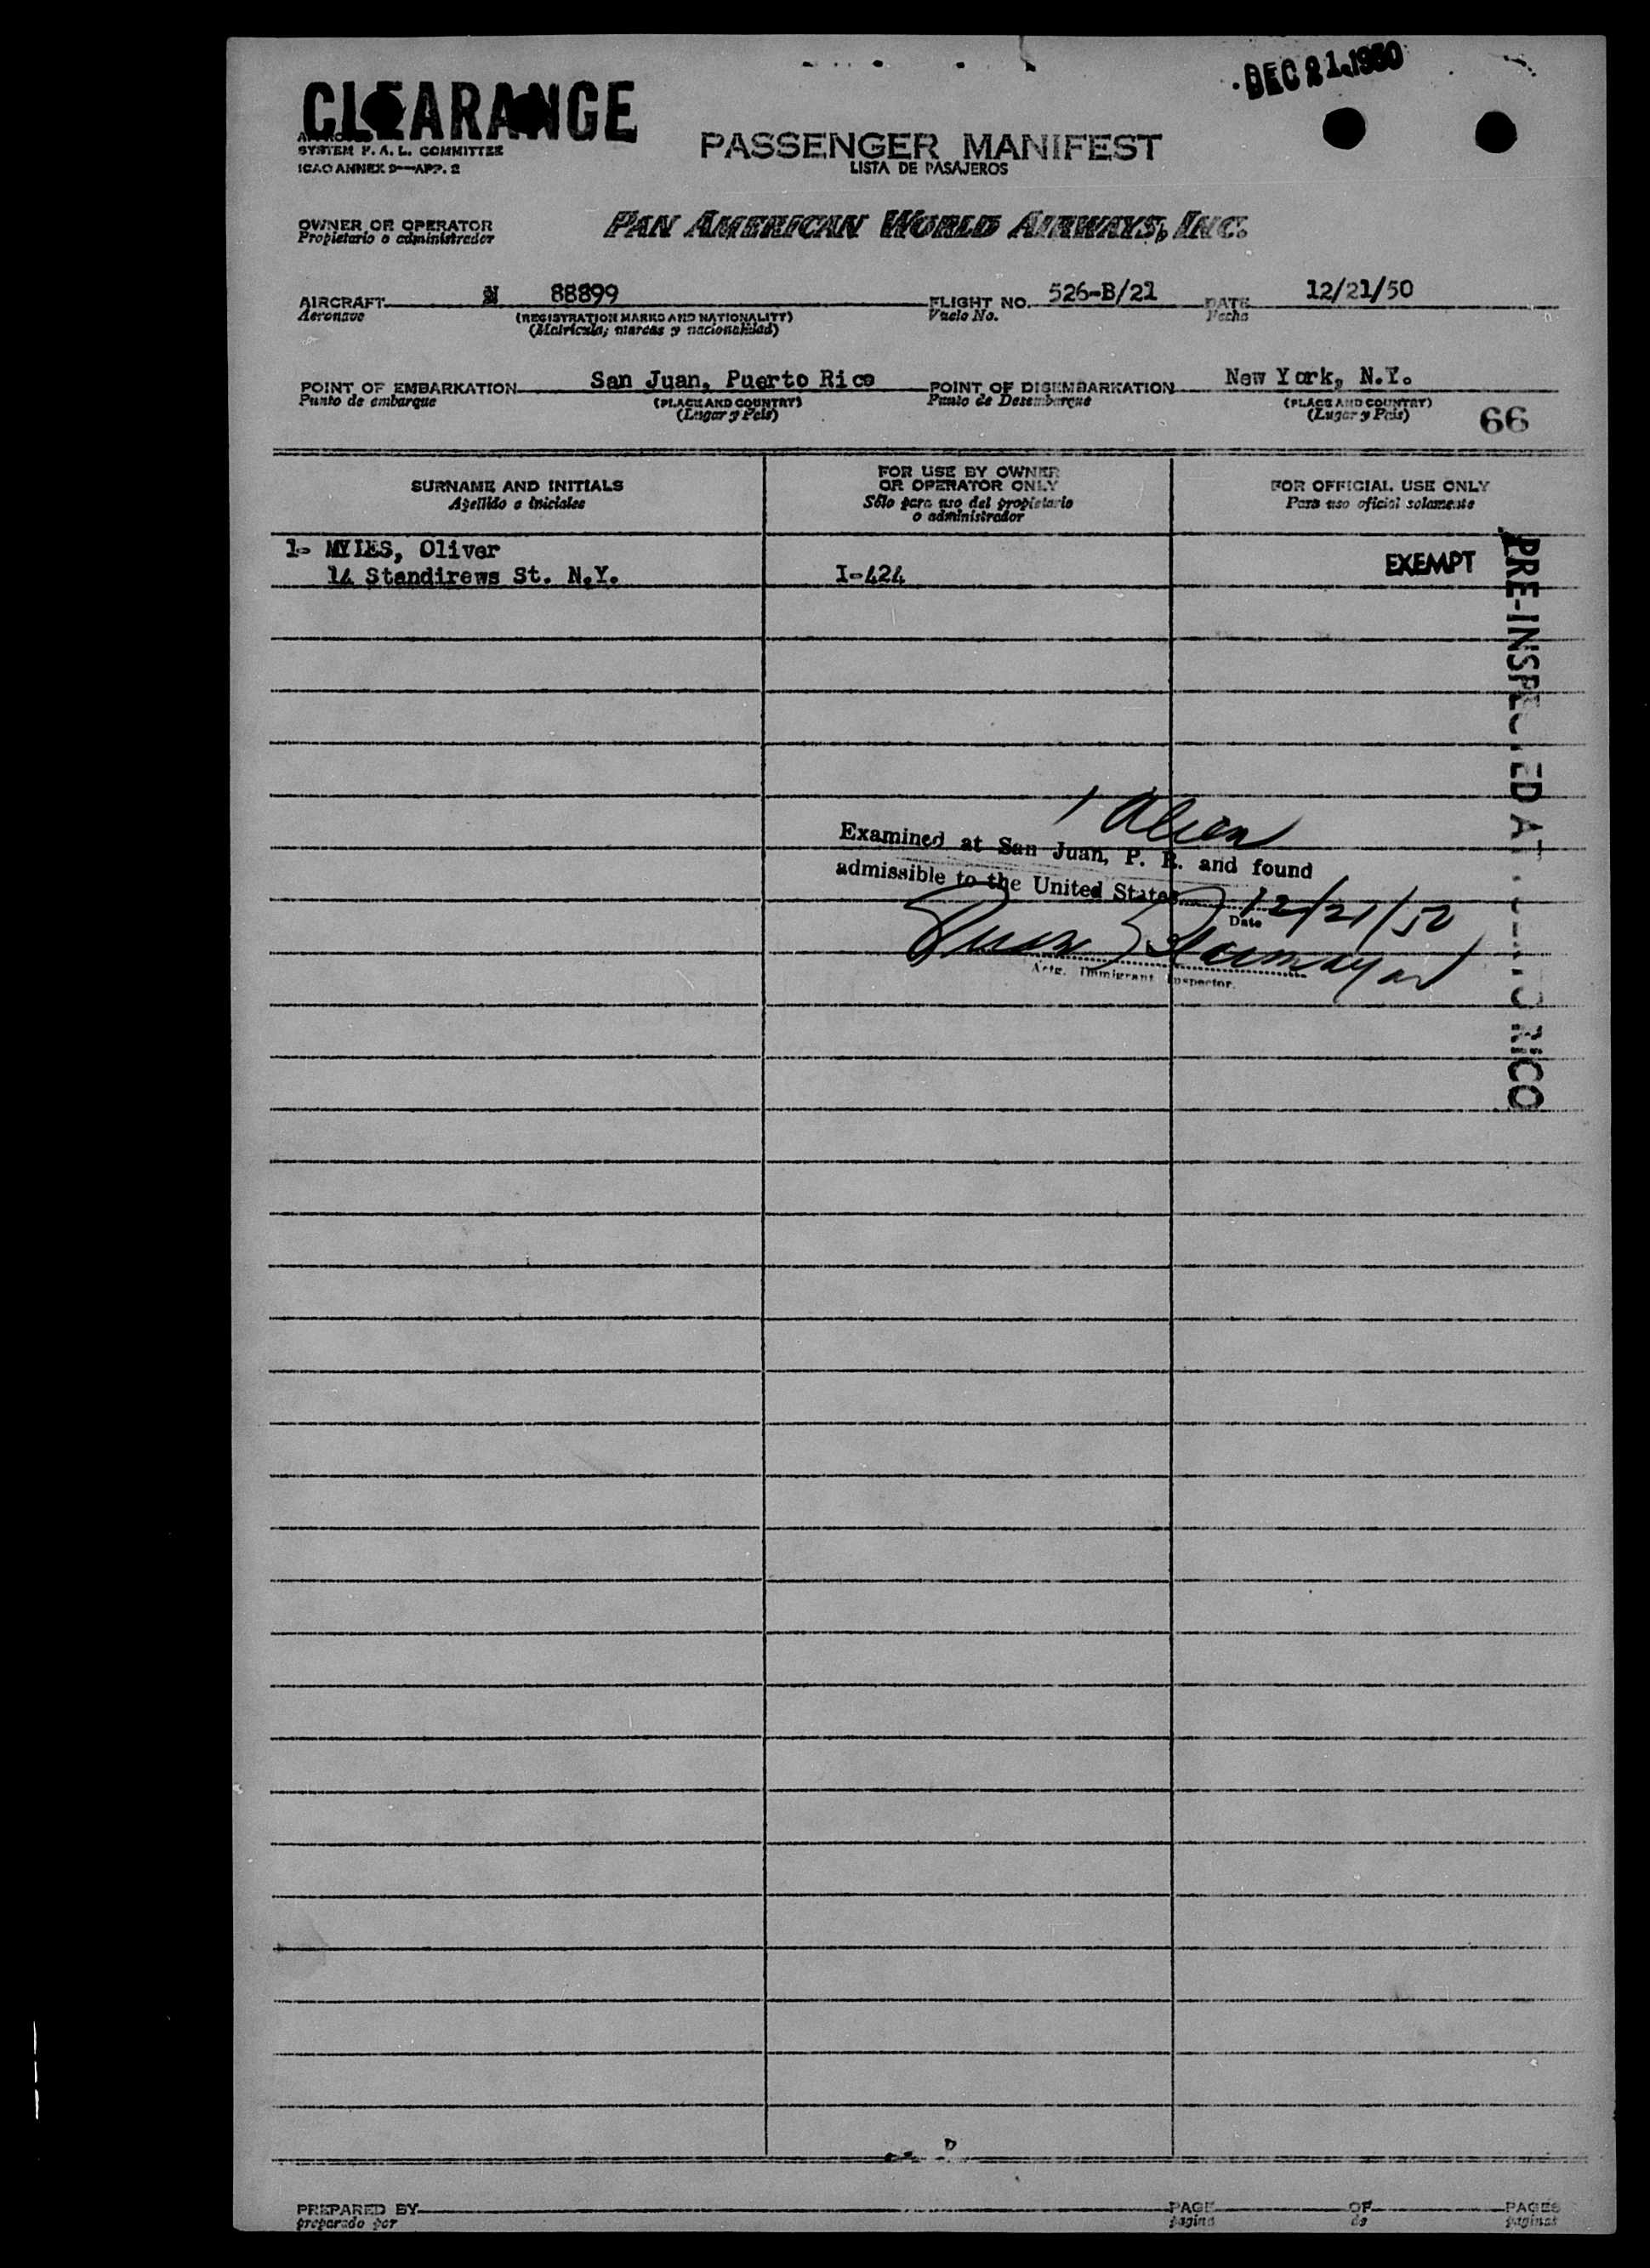 DEC 21 1950
CLEARANCE
SYSTEM F. A. L. COMMITTEE
ICAO ANNEX 9—APP. 2
PASSENGER MANIFEST
LISTA DE PASAJEROS
OWNER OR OPERATOR
Propietario o administrador
PAN AMERICAN WORLD AIRWAYS, INC.
AIRCRAFT N 88899 FLIGHT NO. 526-B/21 DATE 12/21/50
Aeronave (REGISTRATION MARKS AND NATIONALITY) Vuelo No. Fecha
(Matrícula; marcas y nacionalidad)
POINT OF EMBARKATION San Juan, Puerto Rico POINT OF DISEMBARKATION New York, N.Y.
Punto de embarque (PLACE AND COUNTRY) Punto de Desembarque (PLACE AND COUNTRY)
(Lugar y País) (Lugar y País)
66
SURNAME AND INITIALS
Apellido e iniciales
FOR USE BY OWNER
OR OPERATOR ONLY
Sólo para uso del propietario
o administrador
FOR OFFICIAL USE ONLY
Para uso oficial solamente
1- MYLES, Oliver
14 Standirews St. N.Y. I-424 EXEMPT
PRE-INSPECTED AT RICO
1 Alien
Examined at San Juan, P. R. and found
admissible to the United States 12/21/50
Date
Actg. Immigrant Inspector.
PREPARED BY PAGE OF PAGES
preparado por página de páginas